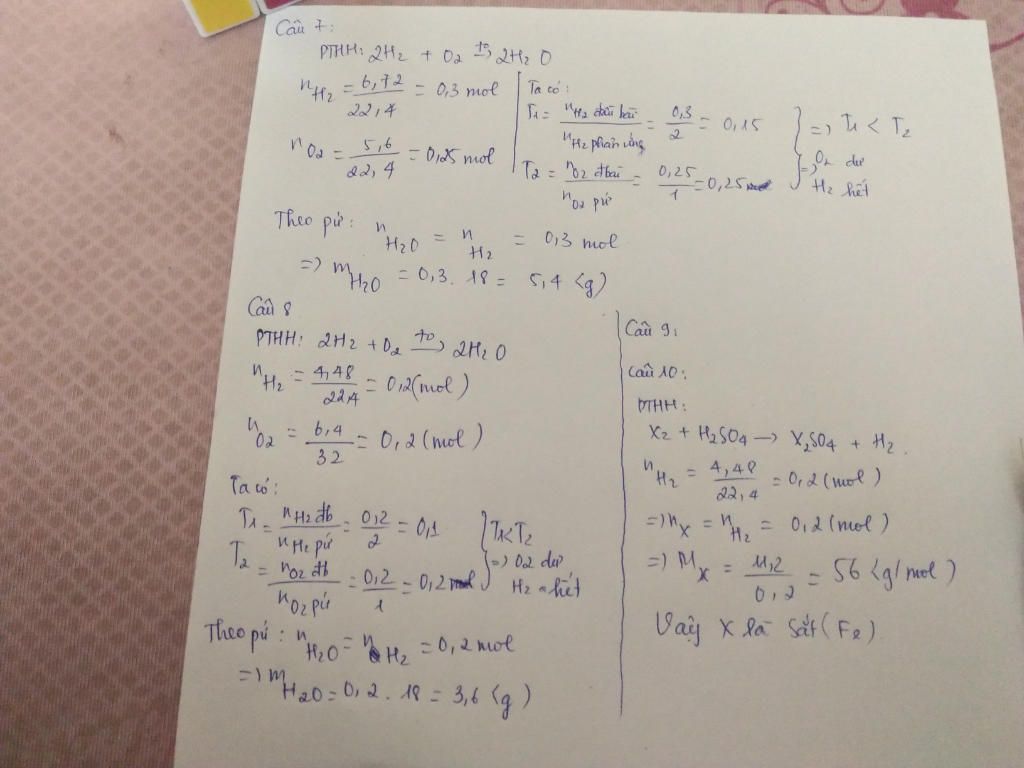 Câu 7:
PTHH: 2H2 + O2 →(t0) 2H2O
nH2 = 6,72/22,4 = 0,3 mol
nO2 = 5,6/22,4 = 0,25 mol
Ta có:
T1 = nH2 đầu bài/nH2 phản ứng = 0,3/2 = 0,15
T2 = nO2 đbài/nO2 pứ = 0,25/1 = 0,25
=> T1 < T2
=> O2 dư
H2 hết
Theo pứ: nH2O = nH2 = 0,3 mol
=> mH2O = 0,3. 18 = 5,4 (g)
Câu 8
PTHH: 2H2 + O2 →(t0) 2H2O
nH2 = 4,48/22,4 = 0,2(mol)
nO2 = 6,4/32 = 0,2 (mol)
Ta có:
T1 = nH2 đb/nH2 pứ = 0,2/2 = 0,1
T2 = nO2 đb/nO2 pứ = 0,2/1 = 0,2
T1<T2
=> O2 dư
H2 hết
Theo pứ: nH2O = nH2 = 0,2 mol
=> mH2O = 0,2. 18 = 3,6 (g)
Câu 9:
Câu 10:
PTHH:
X2 + H2SO4 → X2SO4 + H2.
nH2 = 4,48/22,4 = 0,2 (mol)
=> nX = nH2 = 0,2 (mol)
=> MX = 11,2/0,2 = 56 (g/mol)
Vậy X là Sắt (Fe)